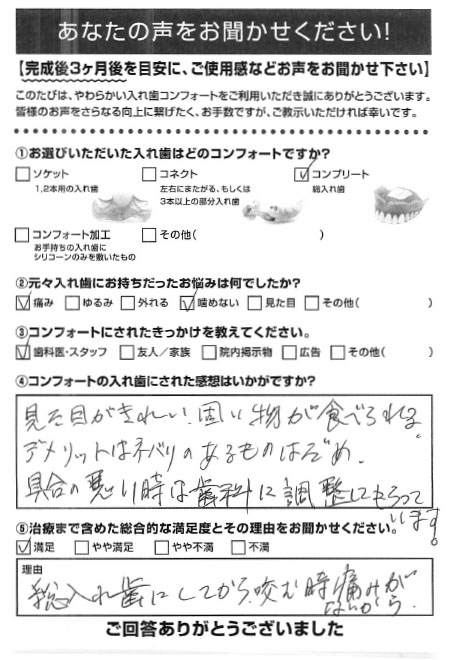 あなたの声をお聞かせください!
【完成後3ヶ月後を目安に、ご使用感などお声をお聞かせ下さい】
このたびは、やわらかい入れ歯コンフォートをご利用いただき誠にありがとうございます。
皆様のお声をさらなる向上に繋げたく、お手数ですが、ご教示いただければ幸いです。
①お選びいただいた入れ歯はどのコンフォートですか?
ソケット
1,2本用の入れ歯
コネクト
左右にまたがる、もしくは
3本以上の部分入れ歯
コンプリート
総入れ歯
コンフォート加工
お手持ちの入れ歯に
シリコーンのみを敷いたもの
その他( )
②元々入れ歯にお持ちだったお悩みは何でしたか?
痛み ゆるみ 外れる 噛めない 見た目 その他( )
③コンフォートにされたきっかけを教えてください。
歯科医・スタッフ 友人/家族 院内掲示物 広告 その他( )
④コンフォートの入れ歯にされた感想はいかがですか?
見た目がきれい、固い物が食べられる。
デメリットはネバリのあるものはだめ.
具合の悪い時は歯科に調整にもらって
います。
⑤治療まで含めた総合的な満足度とその理由をお聞かせください。
満足 やや満足 やや不満 不満
理由
総入れ歯にしてから、咬む時痛みが
ないから.
ご回答ありがとうございました